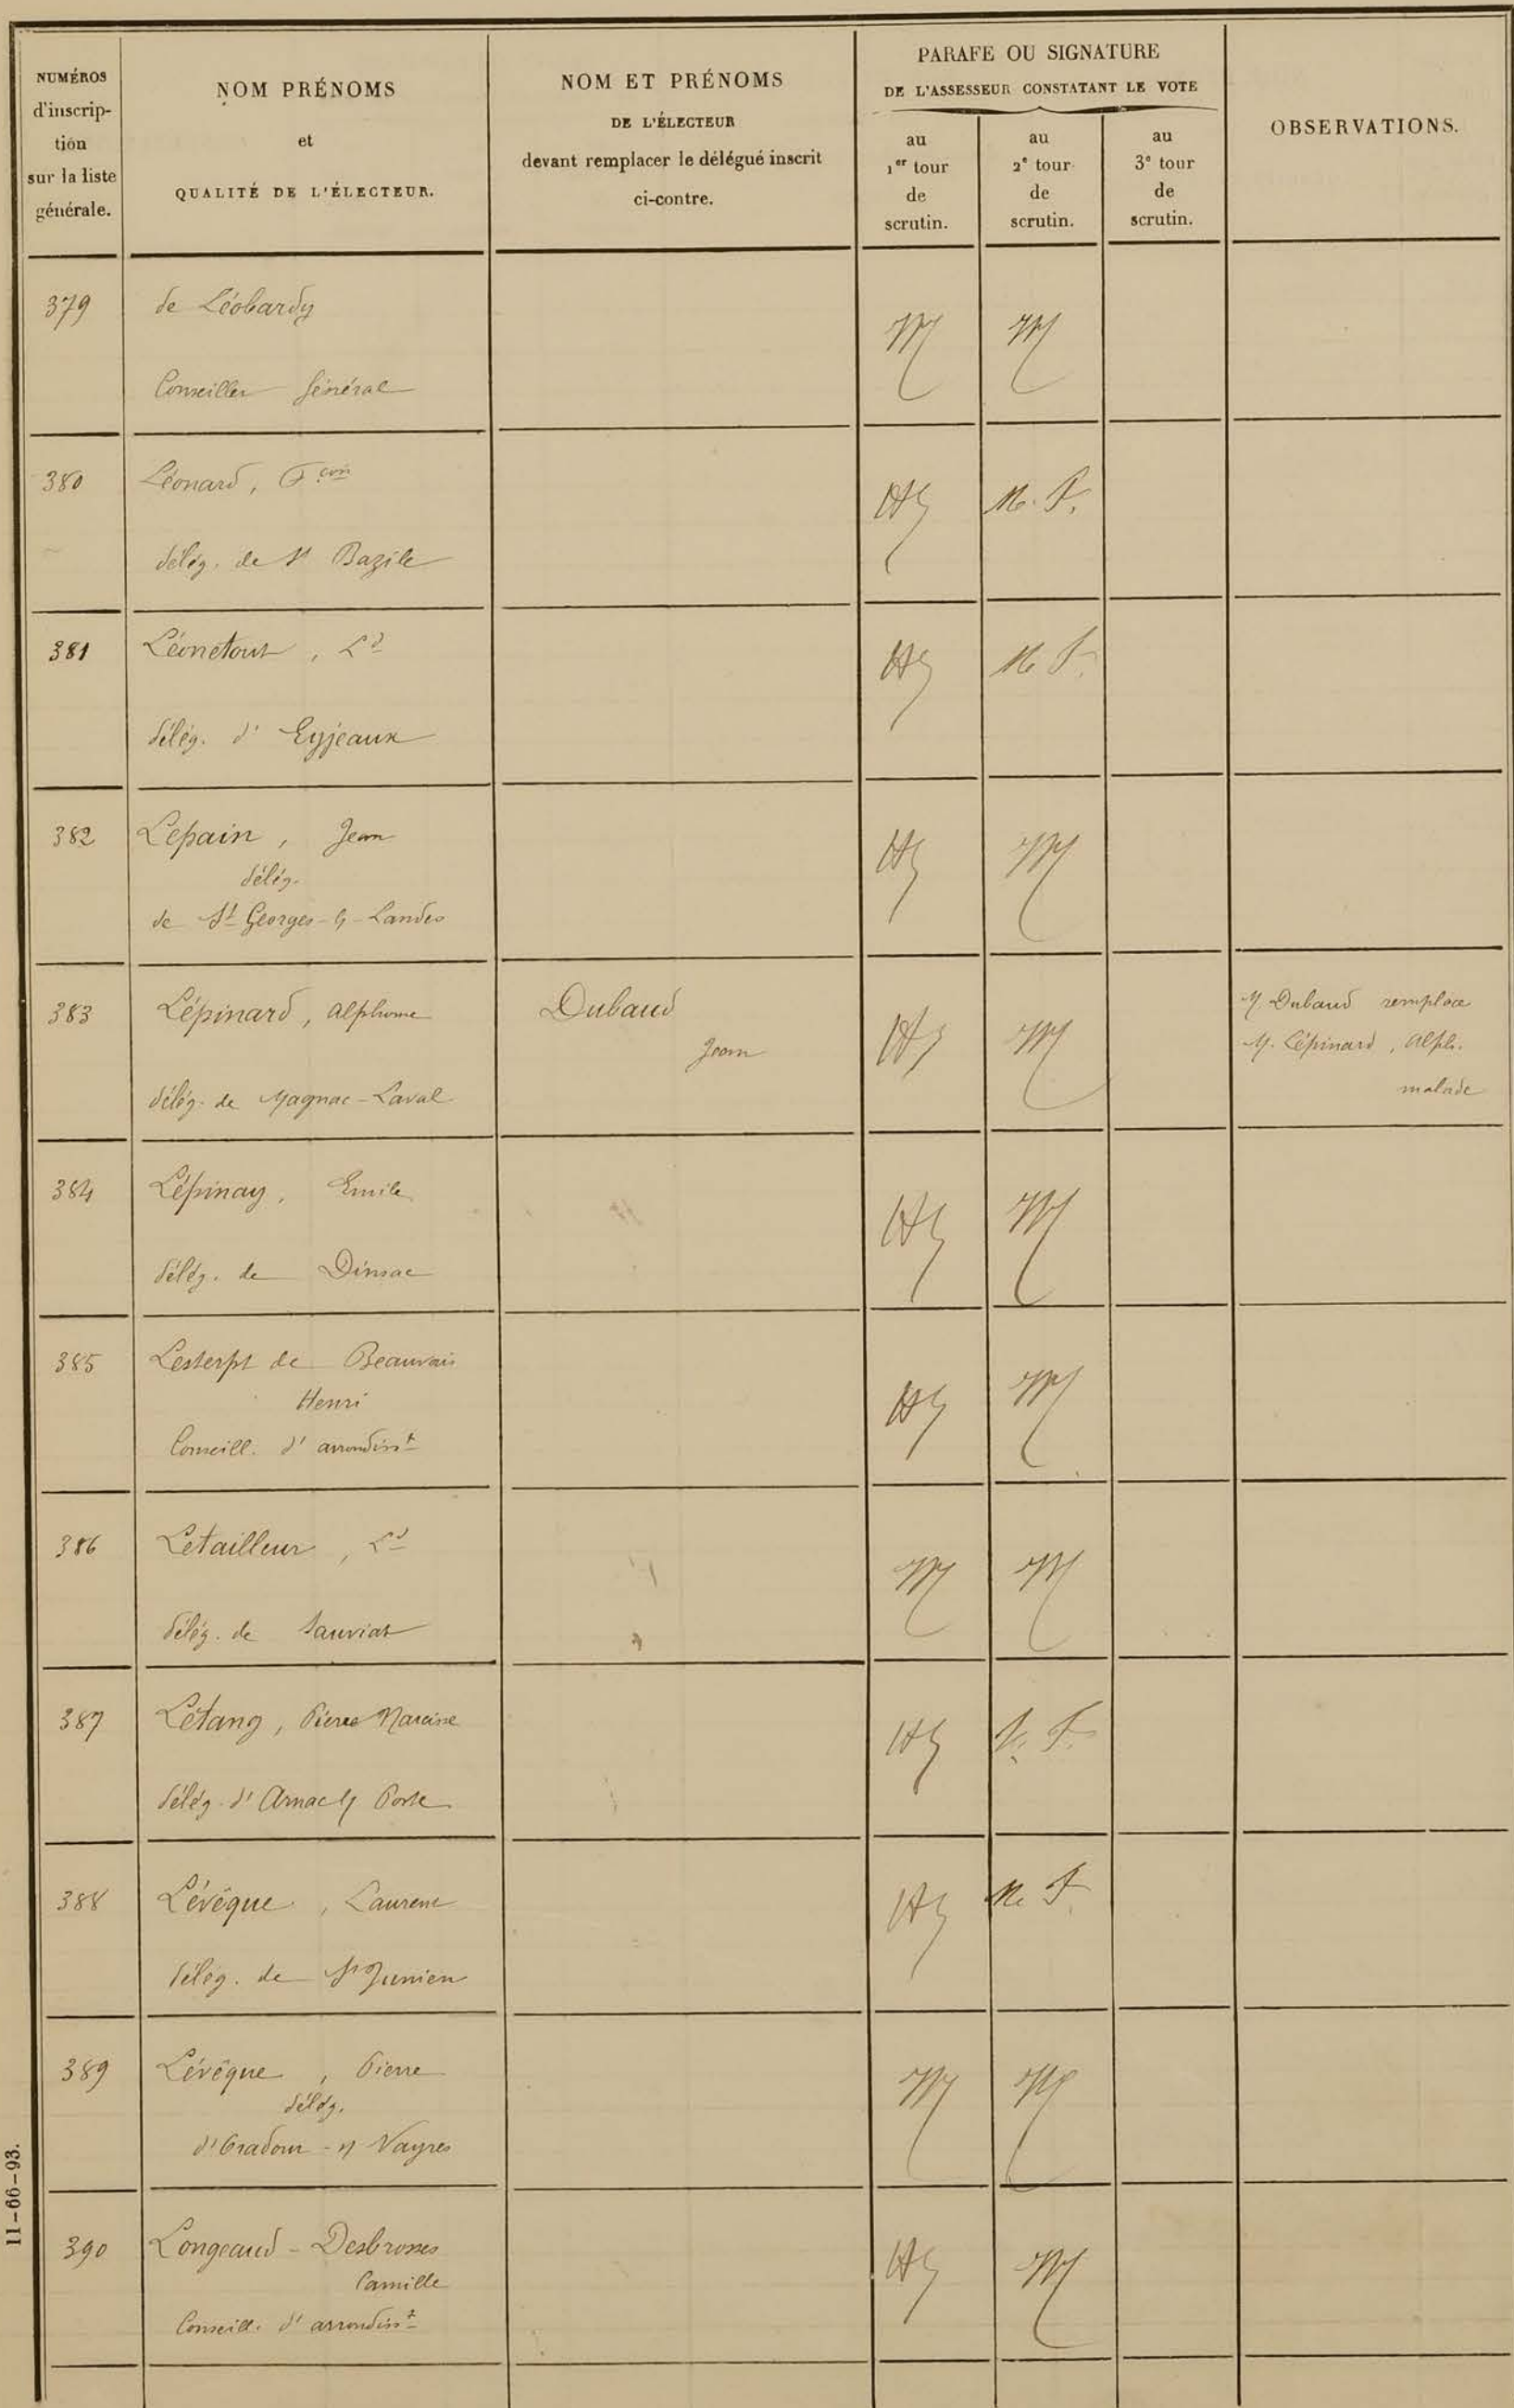 NUMÉROS
d'inscrip-
tion
sur la liste
générale.
NOM PRÉNOMS
et
QUALITÉ DE L'ÉLECTEUR.
NOM ET PRÉNOMS
DE L'ÉLECTEUR
devant remplacer le délégué inscrit
ci-contre.
PARAFE OU SIGNATURE
DE L'ASSESSEUR CONSTATANT LE VOTE
au
1er tour
de
scrutin.
au
2e tour
de
scrutin.
au
3e tour
de
scrutin.
OBSERVATIONS.
379 de Léobardy
Conseiller Général
380 Léonard, Fçois
M. F.
délég. de St Bazile
381 Léonetout, Ld
M F.
délég. d' Eyjeaux
382 Lepain, Jean
délég.
de St Georges-les-Landes
383 Lépinard, Alphonse
Dubaud
Jean
délég. de Magnac-Laval
M. Dubaud remplace
M. Lépinard, Alph.
malade
384 Lépinay, Emile
délég. de Dinsac
385 Lesterpt de Beauvais
Henri
Conseill. d' arrondisst
386 Letailleur, Ld
délég. de Sauviat
387 Létang, Pierre Narcisse
délég. d' Arnac la Poste
388 Lévêque, Laurent
M. F.
délég. de St Junien
389 Lévêque, Pierre
délég.
d'Oradour-s/ Vayres
390 Longeaud-Desbrosses
Camille
Conseill. d' arrondisst
11-66-93.